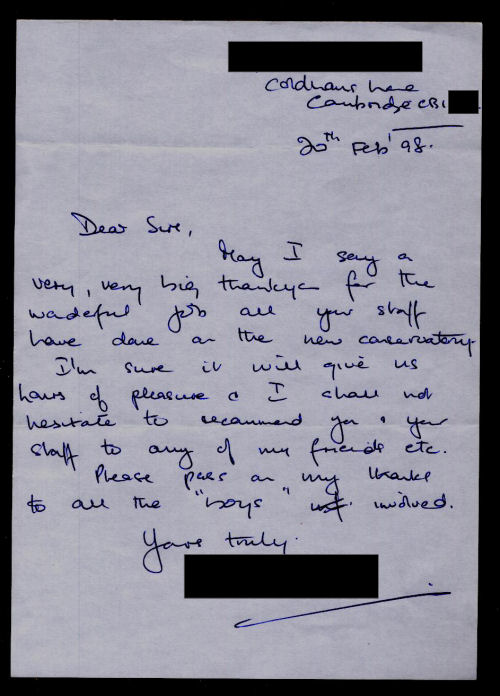 Coldhams Lane
Cambridge CB1
20th Feb' 98.
Dear Sue,
May I say a
very, very big thankyou for the
wonderful job all your staff
have done on the new conservatory
I'm sure it will give us
hours of pleasure & I shall not
hesitate to recommend you & your
staff to any of my friends etc.
Please pass on my thanks
to all the "boys" involved.
Yours truly.